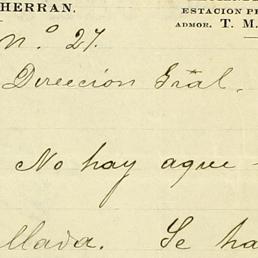 HERRAN.
ESTACION PE
ADMOR. T. M.
n.º 27.
Direccion Gral.
No hay aque
llada. Se ha